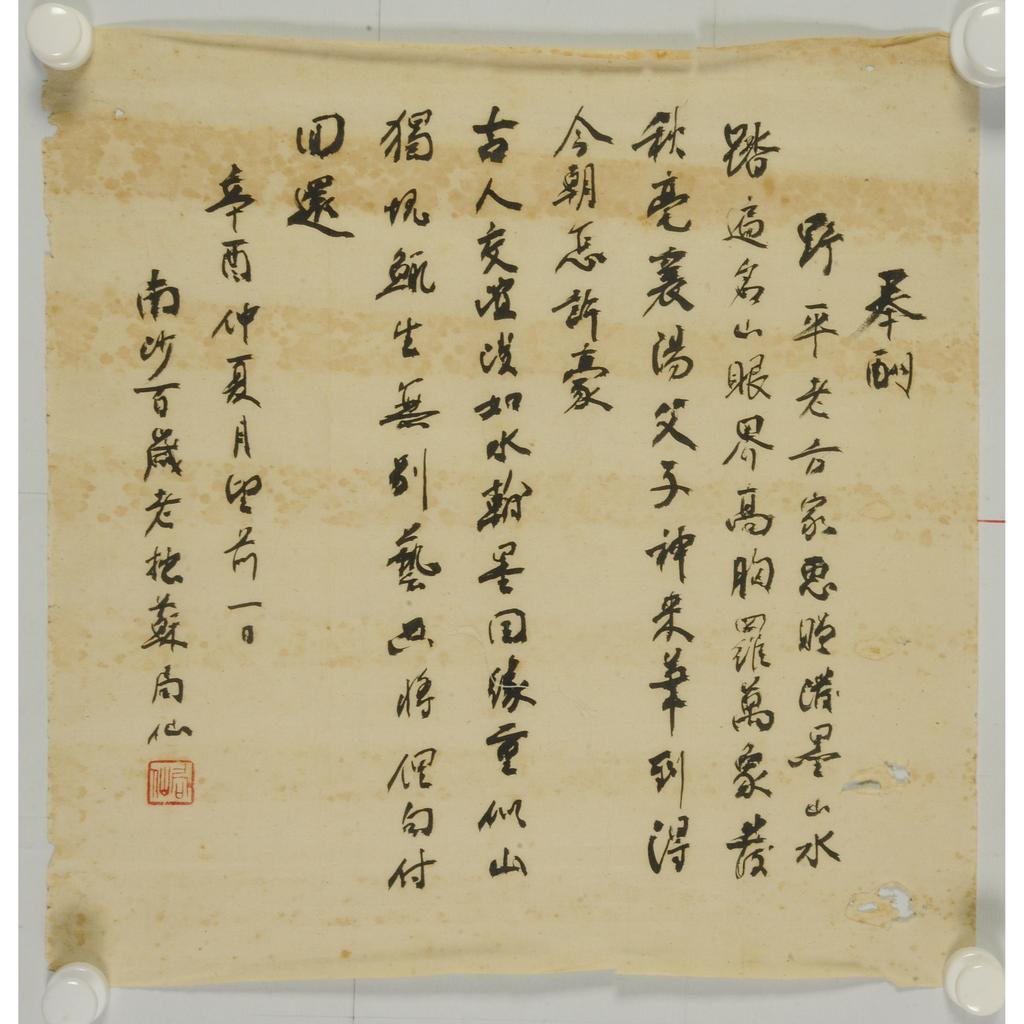 奉酬
野平老方家惠贈潑墨山水
踏遍名山眼界高胸羅萬象發
秋毫襄陽父子神來筆到得
今朝忽許豪
古人交誼淡如水翰墨因緣重似山
獨愧鯫生無別藝只將俚句付
回還
辛酉仲夏月望前一日
南沙百歲老拙蘇局仙
局仙